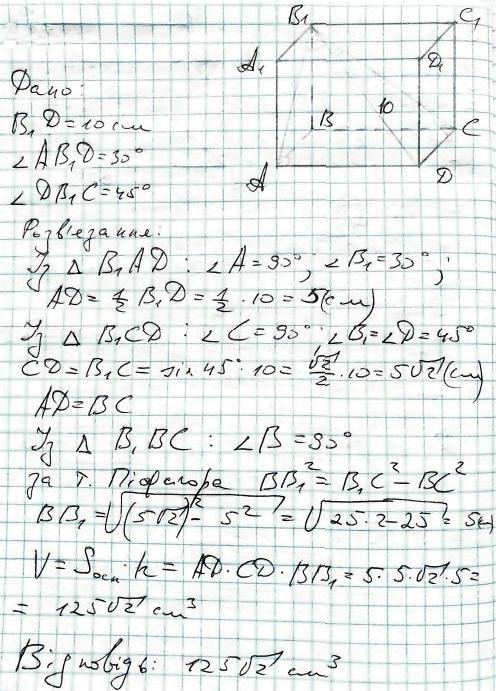 B₁ C₁
A₁ D₁
Дано:
B₁D=10см
∠AB₁D=30°
∠DB₁C=45°
B 10 C
A D
Розв'язання.
Із Δ B₁AD : ∠A=90°; ∠B₁=30°;
AD= 1/2 B₁D= 1/2 · 10 = 5(см)
Із Δ B₁CD : ∠C=90°; ∠B₁=∠D=45°
CD=B₁C= sin 45° · 10= √2/2 · 10= 5√2(см)
AD=BC
Із Δ B₁BC : ∠B=90°
за т. Піфагора BB₁²=B₁C²-BC²
BB₁=√(5√2)²-5² = √25·2-25 = 5см
V=Sосн·h= AD·CD·BB₁=5·5√2·5=
= 125√2 см³
Відповідь: 125√2 см³